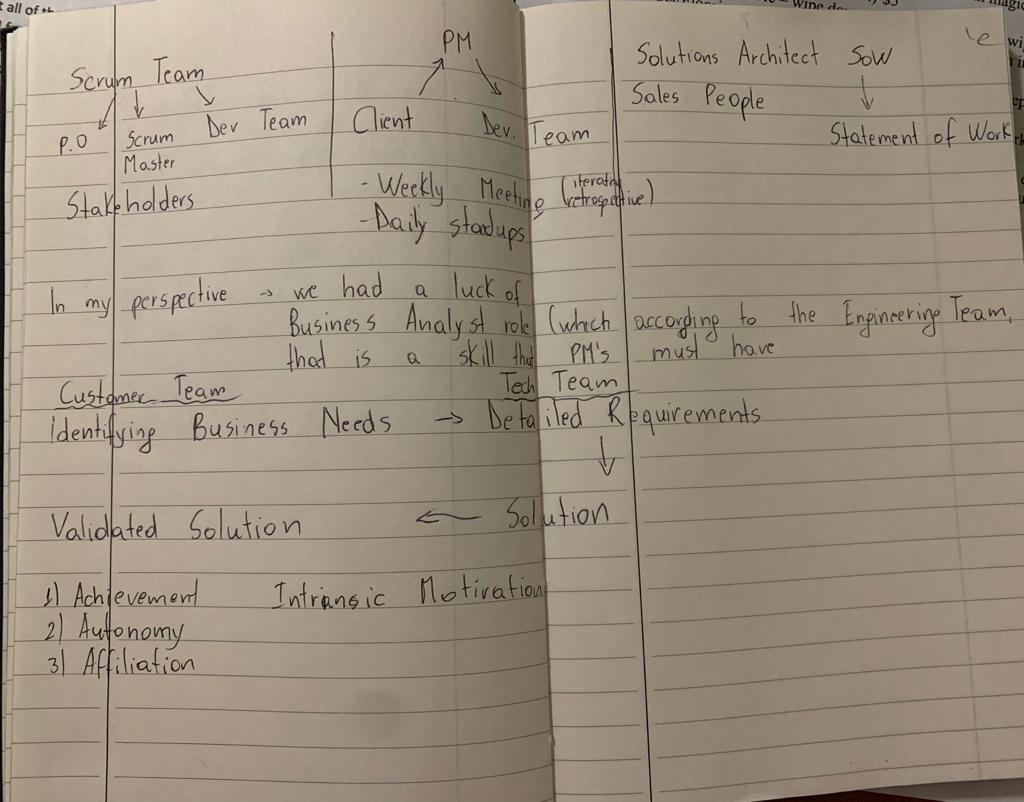 Scrum Team
P.O
Scrum
Master
Dev Team
Stakeholders
PM
Client
Dev. Team
- Weekly Meeting (iteration
retrospective)
- Daily standups
Solutions Architect SoW
Sales People
Statement of Work
In my perspective → we had a luck of
Business Analyst role (which according to the Engineering Team,
that is a skill that PM's must have
Customer Team
Tech Team
Identifying Business Needs → Detailed Requirements
Validated Solution ← Solution
1) Achievement Intrinsic Motivation
2) Autonomy
3) Affiliation